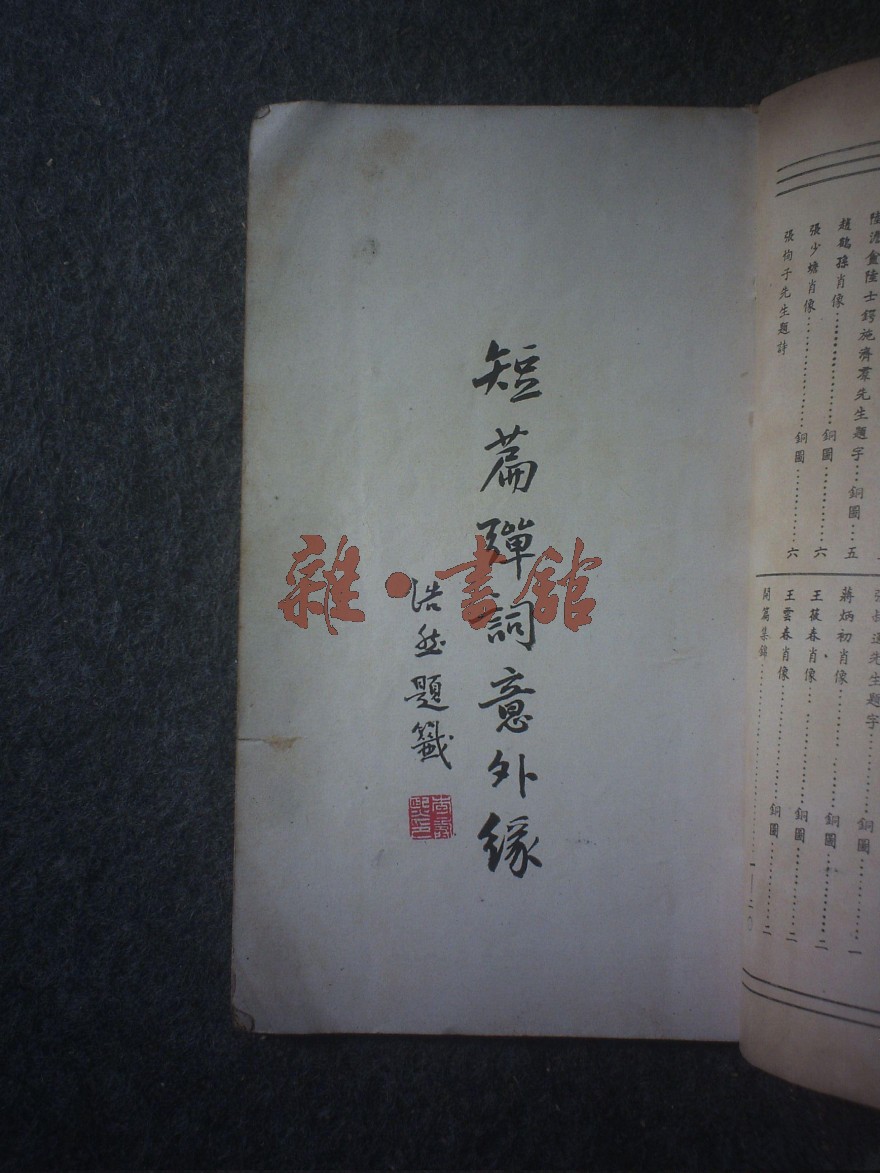 陸士諤施濟羣先生題字…銅圖…五
趙鶴孫肖像…銅圖…六
張少蟾肖像…銅圖…六
張恂子先生題詩
先生題字…銅圖…一
蔣炳初肖像…銅圖…二
王莪春肖像…銅圖…二
王雲春肖像…銅圖…二
開篇集錦…一—二〇
短篇彈詞意外緣
浩然題籤
雜·書館